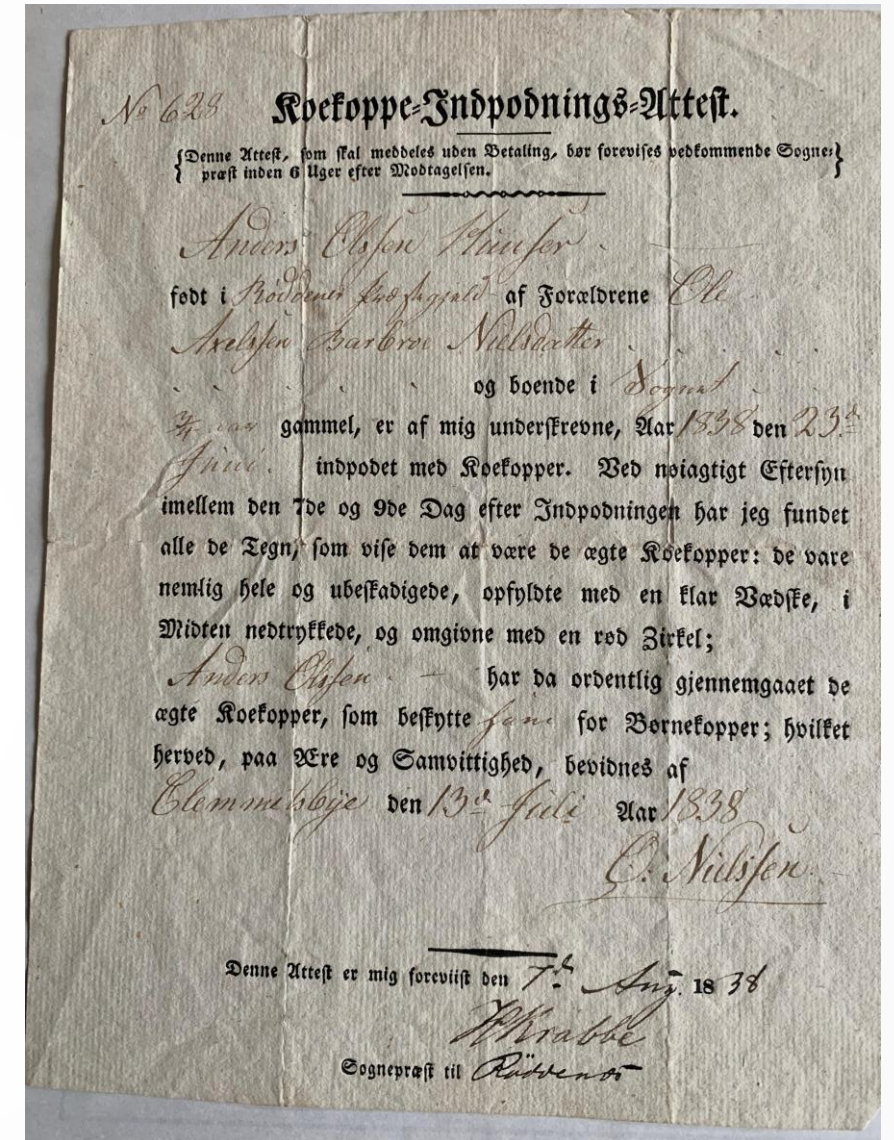 No 628
Koekoppe-Indpodnings-Attest.
{Denne Attest, som skal meddeles uden Betaling, bør forevises vedkommende Sogne-}
præst inden 6 Uger efter Modtagelsen.
Anders Olssen
født i Røddenes Præstegjeld af Forældrene Ole
Axelssen Barbroe Nielsdatter
og boende i Sognet
gammel, er af mig underskrevne, Aar 1838 den 23de
indpodet med Koekopper. Ved nøiagtigt Eftersyn
imellem den 7de og 9de Dag efter Indpodningen har jeg fundet
alle de Tegn, som vise dem at være de ægte Koekopper: de vare
nemlig hele og ubeskadigede, opfyldte med en klar Vædske, i
Midten nedtrykkede, og omgivne med en rød Zirkel;
Anders Olssen har da ordentlig gjennemgaaet de
ægte Koekopper, som beskytte ham for Børnekopper; hvilket
herved, paa Ære og Samvittighed, bevidnes af
Clemmetsbye den 13de Juli Aar 1838
O. Nielssen
Denne Attest er mig foreviist den 7de Aug. 1838
HKrabbe
Sognepræst til Røddenæs